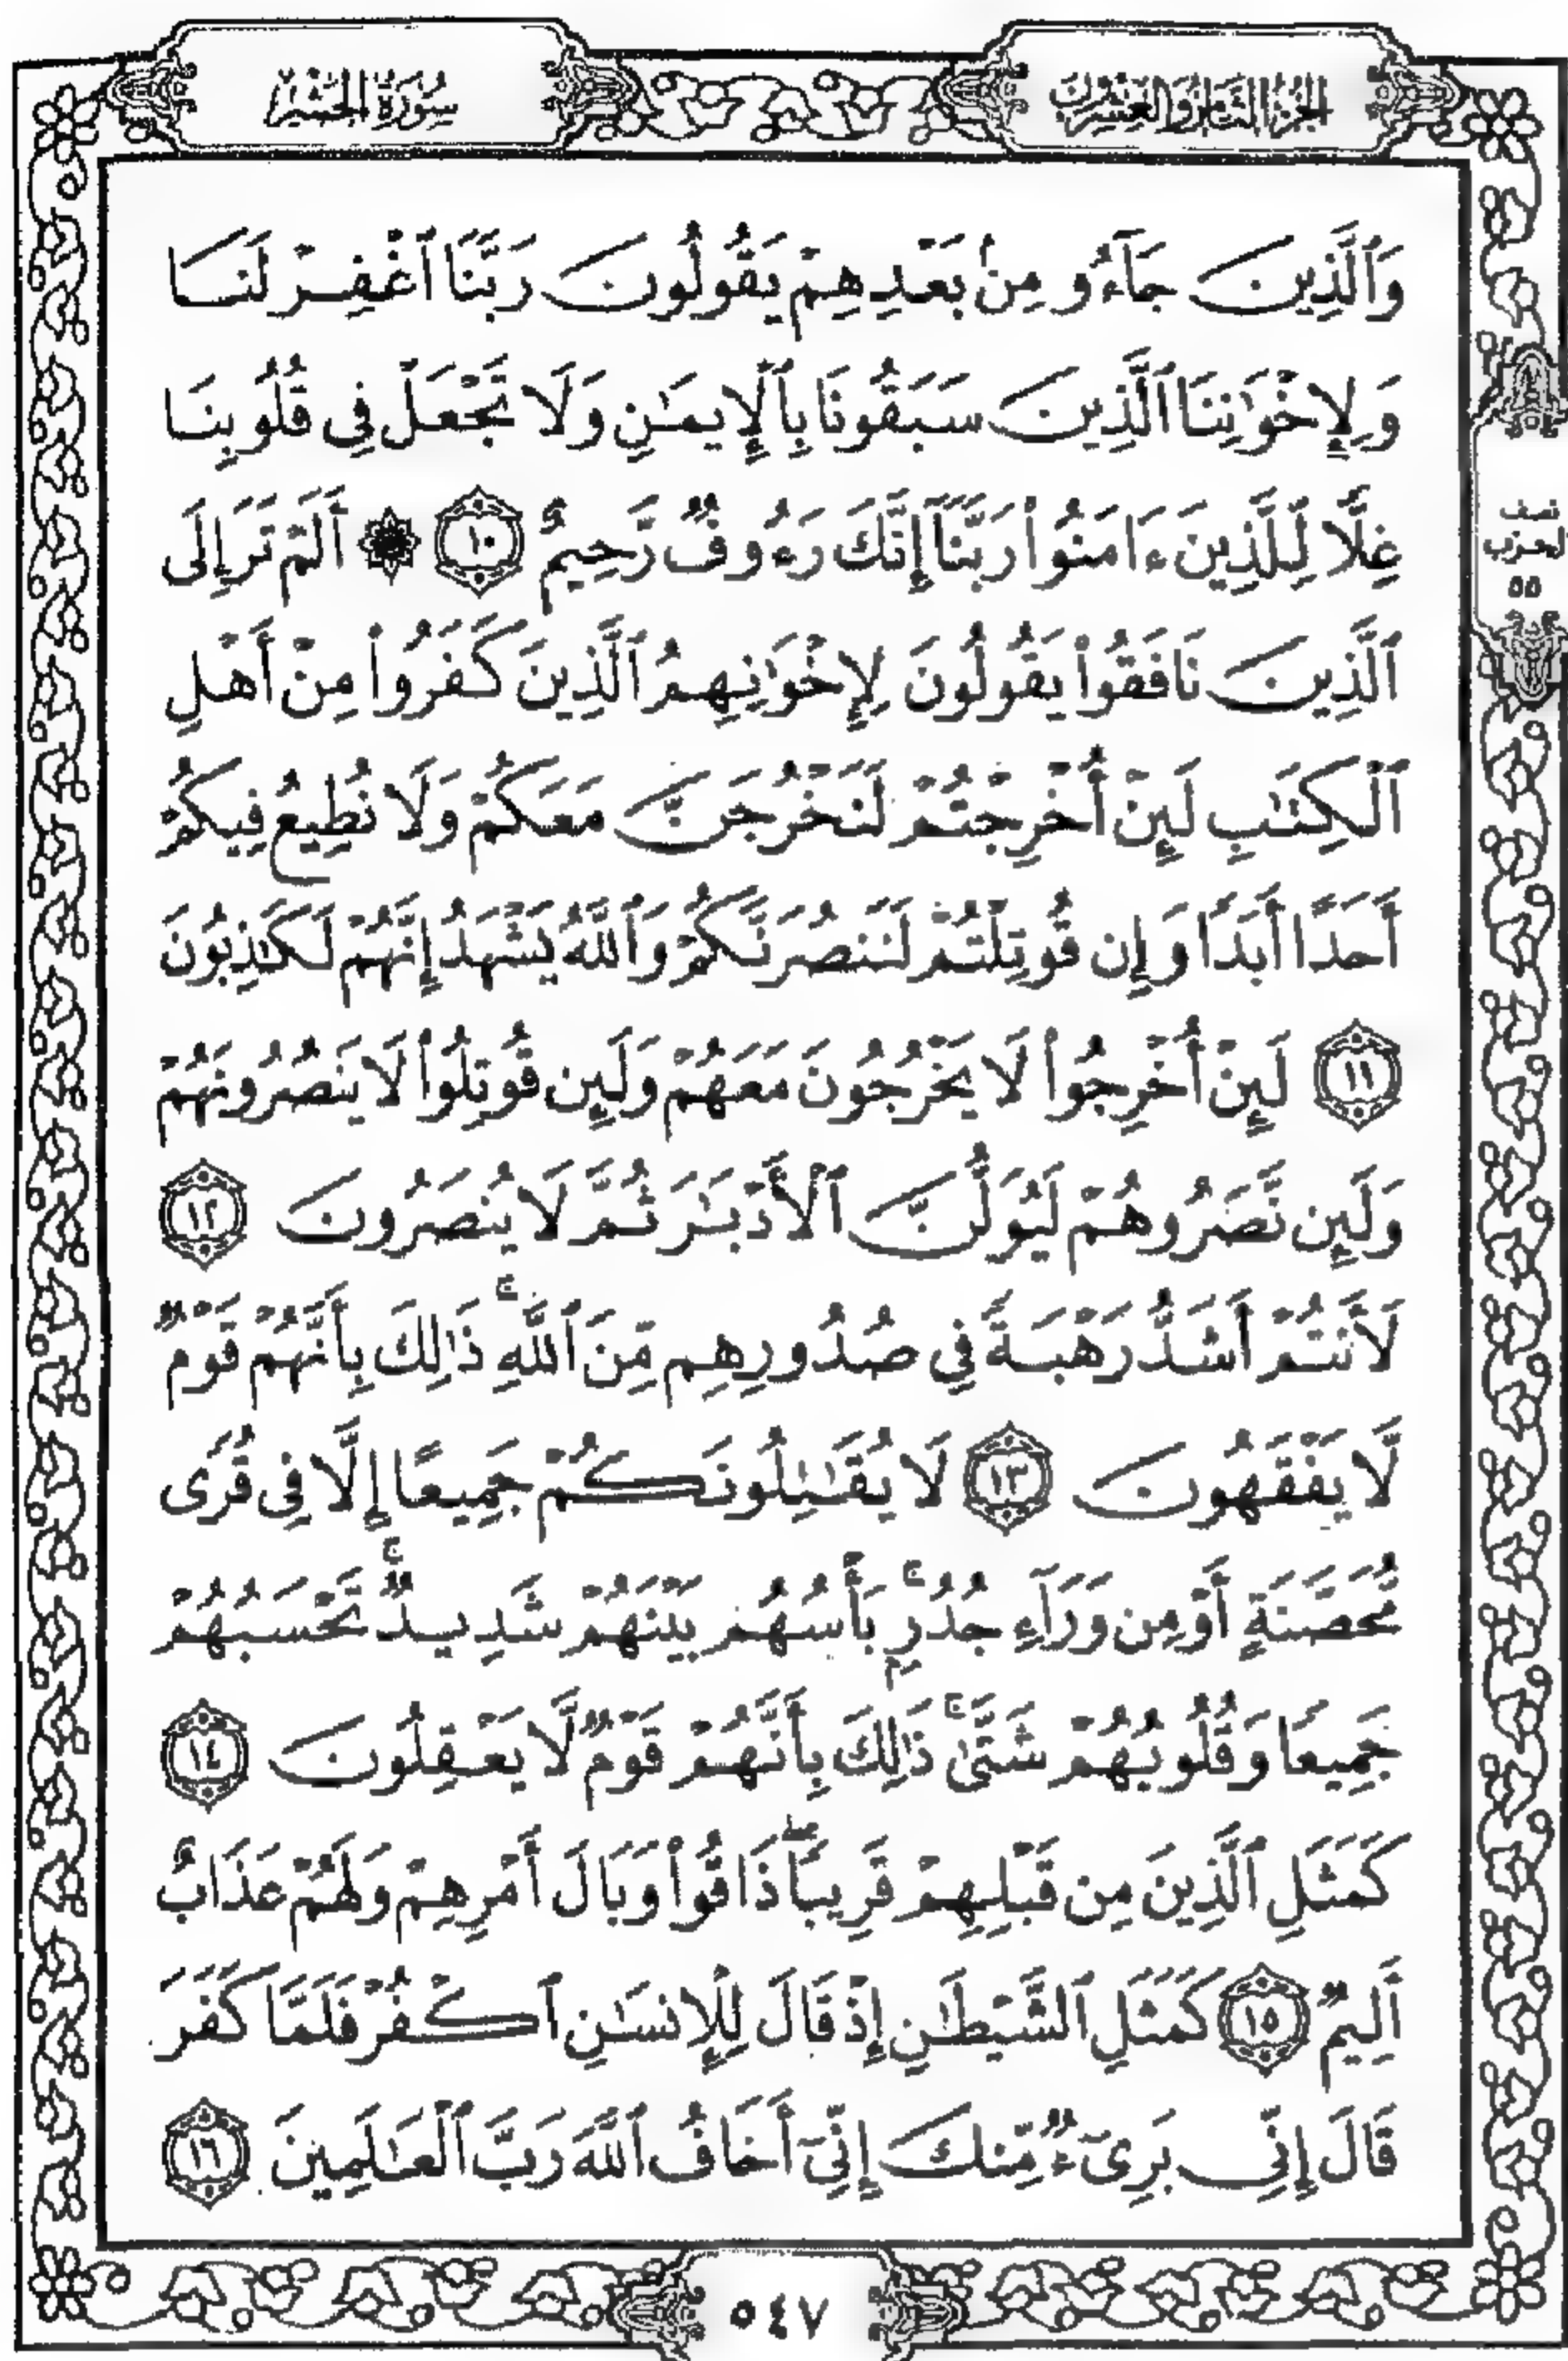 الجزء الثامن والعشرون
سورة الحشر
وَٱلَّذِينَ جَآءُو مِنۢ بَعْدِهِمْ يَقُولُونَ رَبَّنَا ٱغْفِرْ لَنَا
وَلِإِخْوَٰنِنَا ٱلَّذِينَ سَبَقُونَا بِٱلْإِيمَٰنِ وَلَا تَجْعَلْ فِى قُلُوبِنَا
غِلًّا لِّلَّذِينَ ءَامَنُوا۟ رَبَّنَآ إِنَّكَ رَءُوفٌ رَّحِيمٌ ١٠ ۞ أَلَمْ تَرَ إِلَى
نصف
الحزب
٥٥
ٱلَّذِينَ نَافَقُوا۟ يَقُولُونَ لِإِخْوَٰنِهِمُ ٱلَّذِينَ كَفَرُوا۟ مِنْ أَهْلِ
ٱلْكِتَٰبِ لَئِنْ أُخْرِجْتُمْ لَنَخْرُجَنَّ مَعَكُمْ وَلَا نُطِيعُ فِيكُمْ
أَحَدًا أَبَدًا وَإِن قُوتِلْتُمْ لَنَنصُرَنَّكُمْ وَٱللَّهُ يَشْهَدُ إِنَّهُمْ لَكَٰذِبُونَ
١١ لَئِنْ أُخْرِجُوا۟ لَا يَخْرُجُونَ مَعَهُمْ وَلَئِن قُوتِلُوا۟ لَا يَنصُرُونَهُمْ
وَلَئِن نَّصَرُوهُمْ لَيُوَلُّنَّ ٱلْأَدْبَٰرَ ثُمَّ لَا يُنصَرُونَ ١٢
لَأَنتُمْ أَشَدُّ رَهْبَةً فِى صُدُورِهِم مِّنَ ٱللَّهِ ۚ ذَٰلِكَ بِأَنَّهُمْ قَوْمٌ
لَّا يَفْقَهُونَ ١٣ لَا يُقَٰتِلُونَكُمْ جَمِيعًا إِلَّا فِى قُرًى
مُّحَصَّنَةٍ أَوْ مِن وَرَآءِ جُدُرٍۭ ۚ بَأْسُهُم بَيْنَهُمْ شَدِيدٌ ۚ تَحْسَبُهُمْ
جَمِيعًا وَقُلُوبُهُمْ شَتَّىٰ ۚ ذَٰلِكَ بِأَنَّهُمْ قَوْمٌ لَّا يَعْقِلُونَ ١٤
كَمَثَلِ ٱلَّذِينَ مِن قَبْلِهِمْ قَرِيبًا ۖ ذَاقُوا۟ وَبَالَ أَمْرِهِمْ وَلَهُمْ عَذَابٌ
أَلِيمٌ ١٥ كَمَثَلِ ٱلشَّيْطَٰنِ إِذْ قَالَ لِلْإِنسَٰنِ ٱكْفُرْ فَلَمَّا كَفَرَ
قَالَ إِنِّى بَرِىٓءٌ مِّنكَ إِنِّىٓ أَخَافُ ٱللَّهَ رَبَّ ٱلْعَٰلَمِينَ ١٦
٥٤٧